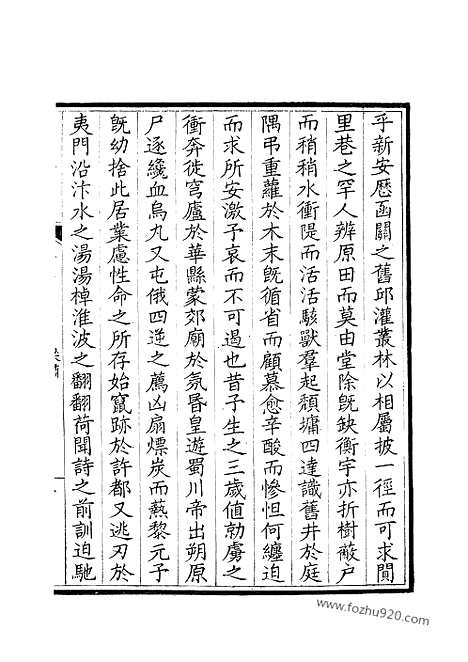 乎新安歴函關之舊邱灌叢林以相屬披一徑而可求閴
里巷之罕人辨原田而莫由堂除既缺衡宇亦折樹蔽户
而稍稍水衝隄而活活駭獸羣起頽墉四達識舊井於庭
隅弔重蘿於木末既循省而顧慕愈辛酸而慘怛何纏迫
而求所安激予哀而不可遏也昔子生之三歲値勍虜之
衝奔徙穹廬於華縣蒙郊廟於氛昬皇遊蜀川帝出朔原
尸逐纔血烏丸又屯俄四逆之薦凶扇熛炭而爇黎元子
既幼捨此居業慮性命之所存始竄跡於許都又逃刃於
夷門沿汴水之湯湯棹淮波之翻翻荷聞詩之前訓迫馳
www.fozhu920.com